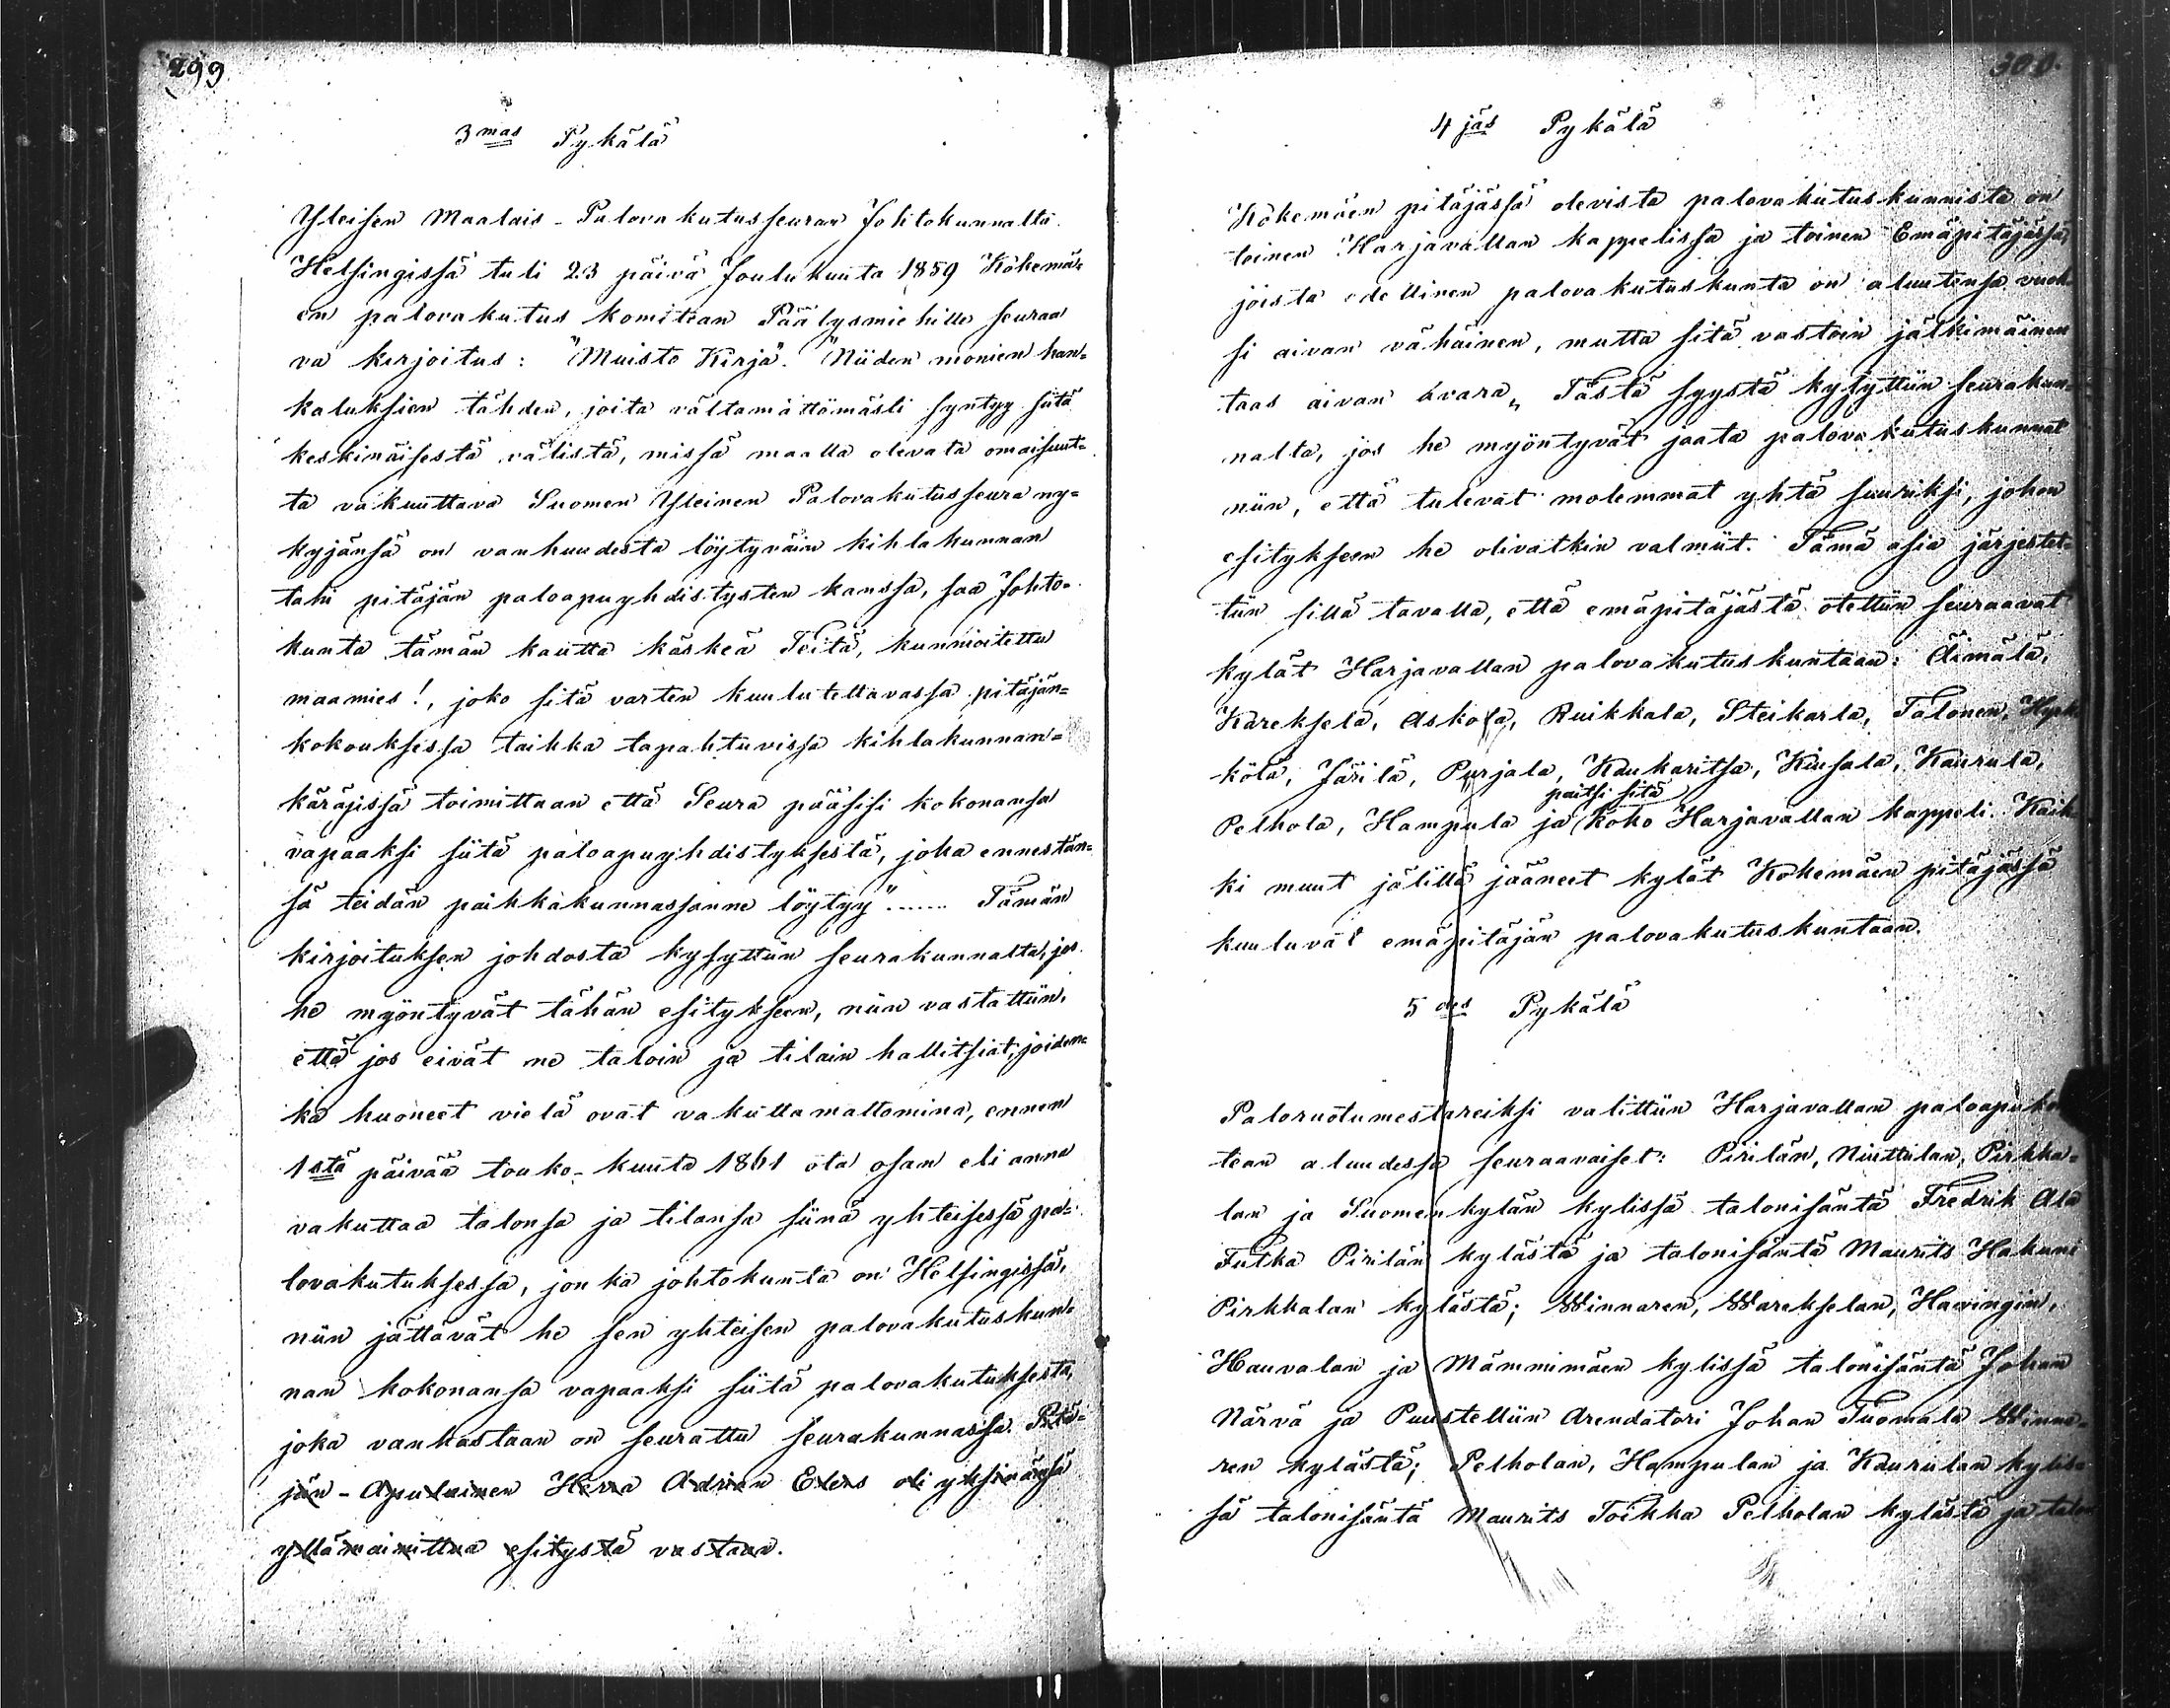 299
3mas Pykälä
Yleisen Maalais-Palovakutusseuran Johtokunnalta
Helsingissä tuli 23 päivä Joulukuuta 1859 Kökemä=
en palovakutus komitean Päälysmiehille seuraa
va kirjoitus: "Muisto Kirja". "Niiden monien han=
kaluksien tähden, joita vältamättömästi syntyy siitä
keskinäisestä välistä, missä maalla olevata omaisuut=
ta vakuuttava Suomen Yleinen Palovakutusseura ny=
kyjänsä on vanhuudesta löytyväin kihlakunnan
tahi pitäjän paloapuyhdistysten kanssa, saa Johto=
kunta tämän kautta käskeä Teitä, kunnioitettu
maamies!, joko sitä varten kuulutettavassa pitäjän=
kokouksessa taikka tapahtuvissa kihlakunnan=
käräjissä toimittaan että Seura pääsisi kokonansa
vapaaksi siitä paloapuyhdistyksestä, joka ennestän=
sä teidän paikkakunnassanne löytyy"...... Tämän
kirjoituksen johdosta kysyttiin seurakunnalta, jos
he myöntyvät tähän esitykseen, niin vastattiin,
että jos eivät ne taloin ja tilain hallitsiat, joiden=
ka huoneet vielä ovat vakuttamattomina, ennen
1stä päivää touko-kuuta 1861 ota osan eli anna
vakuttaa talonsa ja tilansa siinä yhteisessä pa=
lovakutuksessa, jonka johtokunta on Helsingissä,
niin jättävät he sen yhteisen palovakutuskun=
nan kokonansa vapaaksi siitä palovakutuksesta,
joka vanhastaan on seurattu seurakunnassa. Pitä=
jän-Apulainen Herra Adrian Elers oli yksinänsä
yllämainittua esitystä vastaan.
300.
4jäs Pykälä
Kökemäen pitäjässä olevista palovakutuskunnista on
toinen Harjavallan kappelissa ja toinen Emäpitäjässä,
joista edellinen palovakutuskunta on aluutensa vuok
si aivan vähäinen, mutta sitä vastoin jälkimäinen
taas aivan avara„ Tästä syystä kysyttiin seurakun
nalta, jos he myöntyvät jaata palovakutuskunnat
niin, että tulevat molemmat yhtä suuriksi, johon
esitykseen he olivatkin valmiit. Tämä asia järjestet=
tiin sillä tavalla, että emäpitäjästä otettiin seuraavat
kylät Harjavallan palovakutuskuntaan: Äimälä,
Kareksela, Askola, Ruikkala, Steikarla, Talonen, Hyrk
kölä, Järilä, Purjala, Kaukaritsa, Kiusala, Kaurula,
paitsi sitä
Pelhola, Hampula ja koko Harjavallan kappeli. Kaik
ki muut jälillä jääneet kylät Kokemäen pitäjässä
kuuluvat emäpitäjän palovakutuskuntaan.
5des Pykälä
Paloruotumestareiksi valittiin Harjavallan paloapuko
tean aluudessa seuraavaiset: Pirilän, Niuttulan, Pirkka=
lan ja Suomenkylän kylissä talonisäntä Fredrik Ala
Futka Pirilän kylästä ja talonisäntä Maurits Hakuni
Pirkkalan kylästä; Winnaren, Warekselan, Havingin,
Hauvalan ja Mämmimäen kylissä talonisäntä Johan
Närvä ja Puustelliin Arendatori Johan Tuomala Winna=
ren kylästä; Pelholan, Hampulan ja Kaurulan kylis=
sä talonisäntä Maurits Toikka Pelholan kylästä ja talon